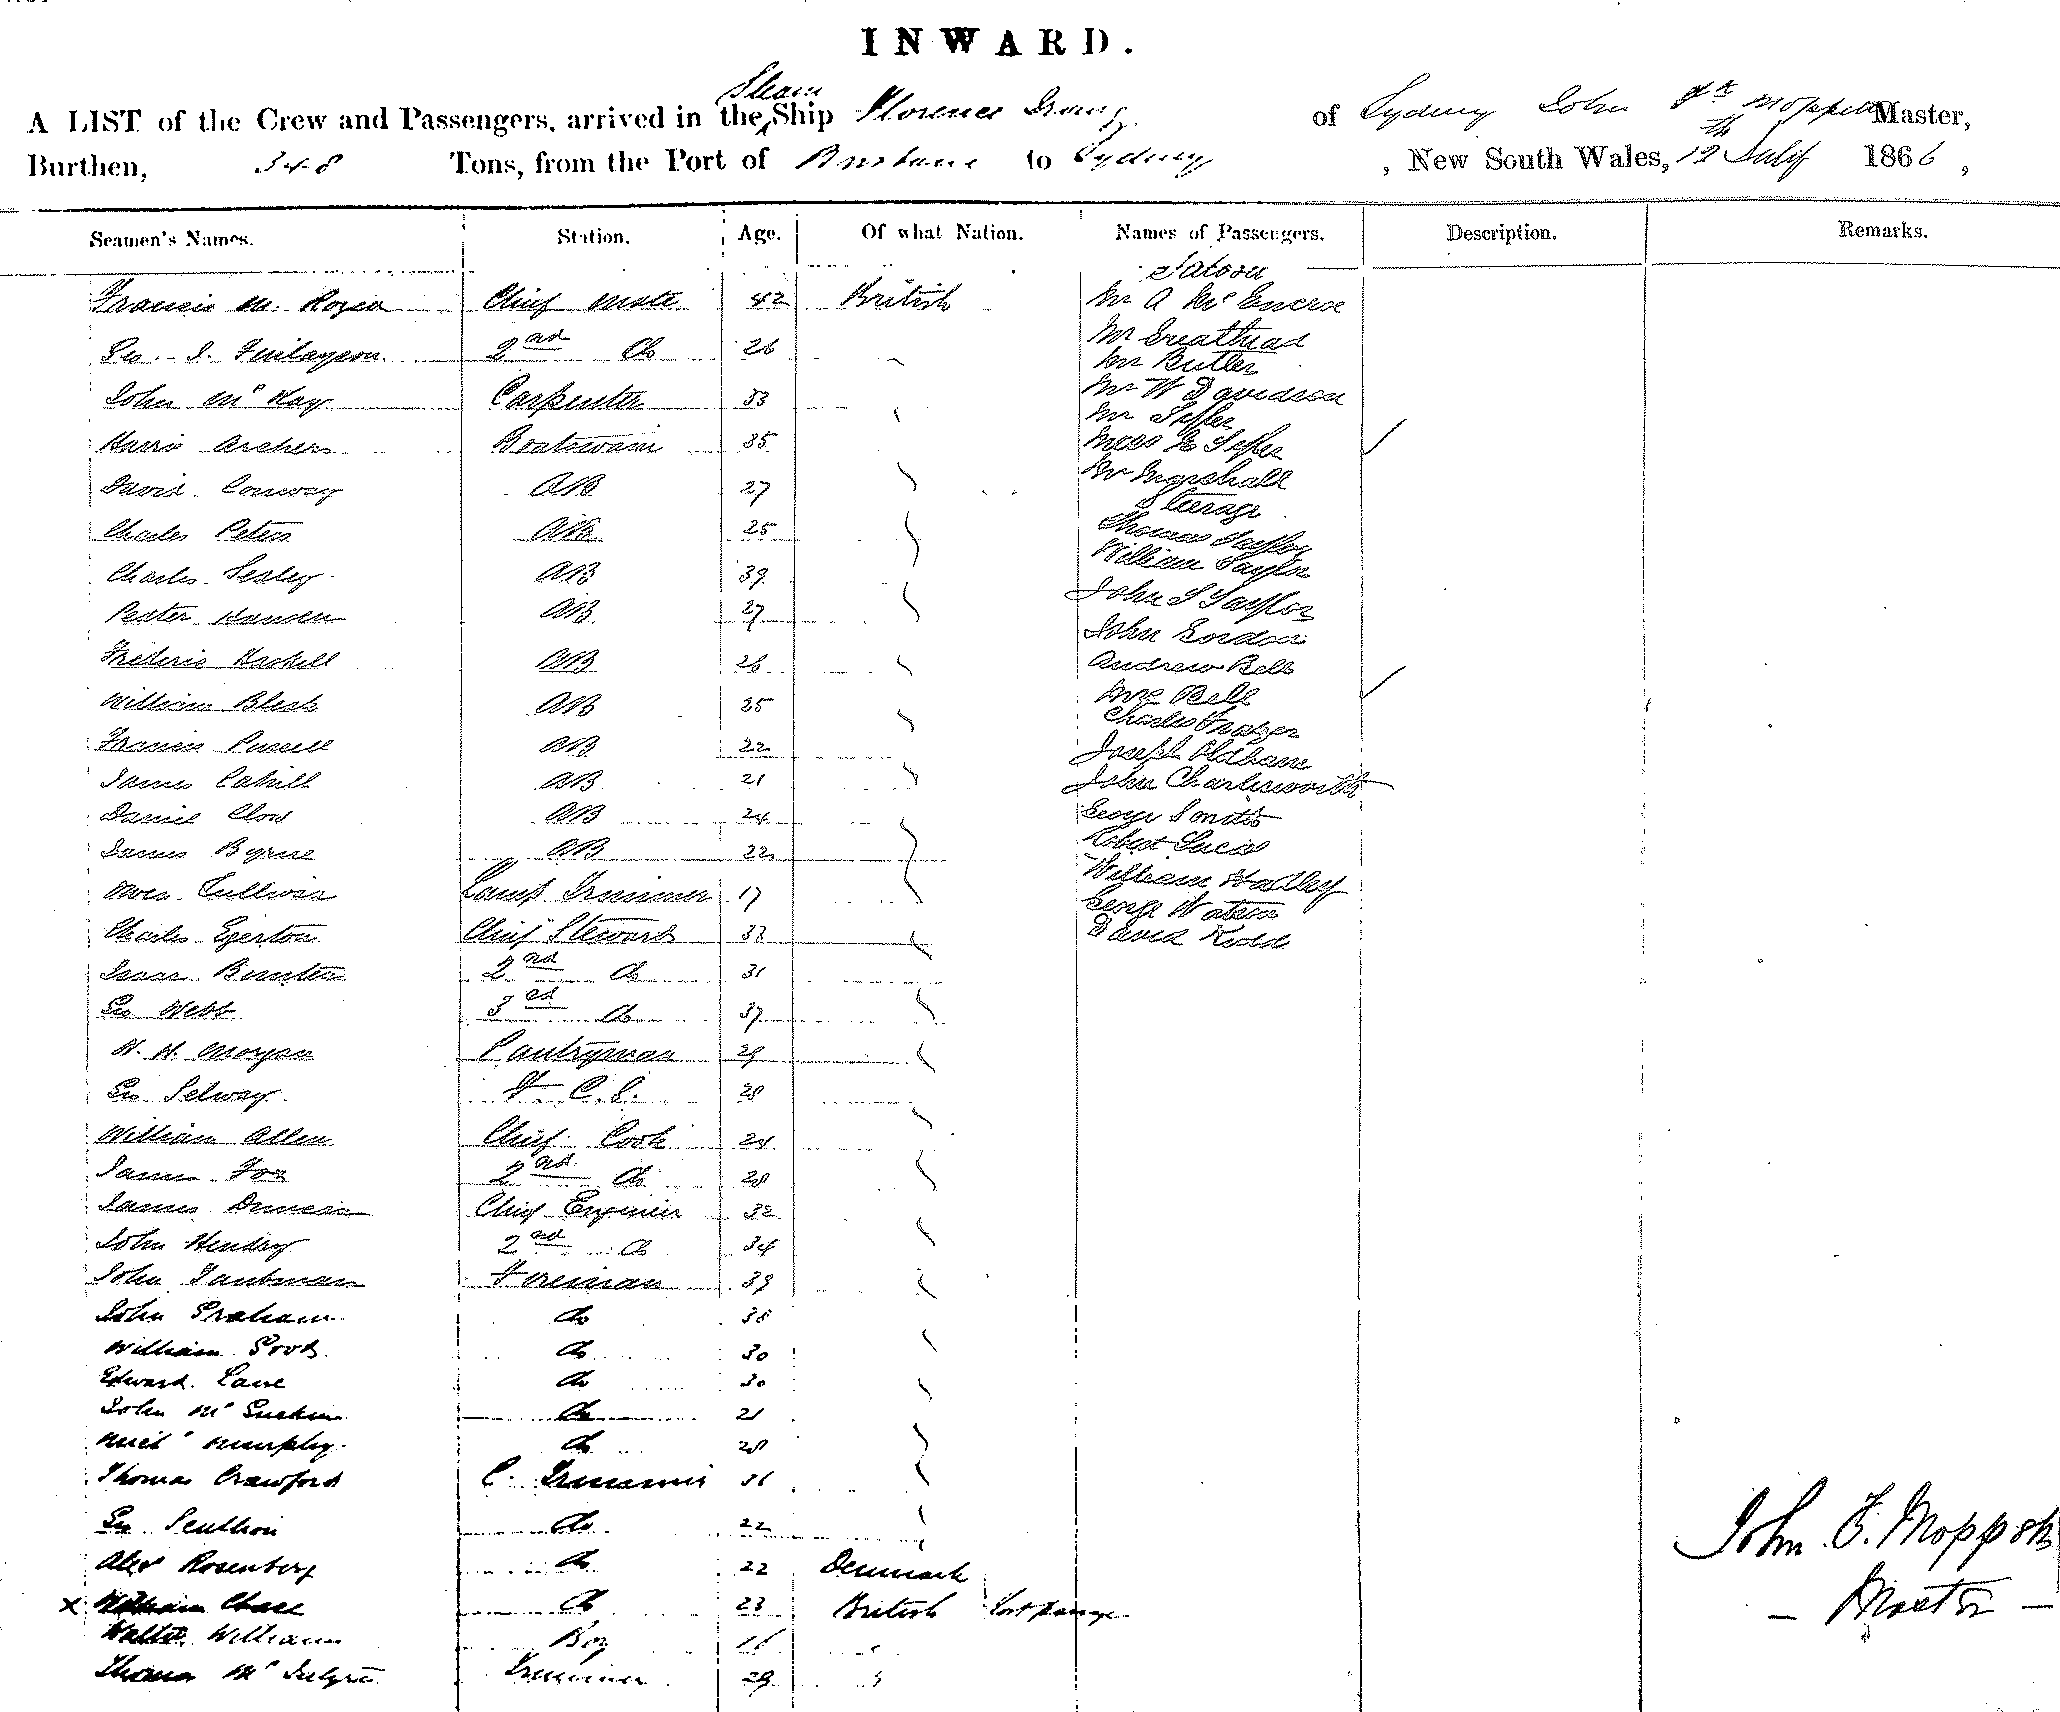 INWARD.
A LIST of the Crew and Passengers, arrived in the Steam Ship Florence Irving of Sydney John Moppett Master,
Burthen, 348 Tons, from the Port of Brisbane to Sydney , New South Wales, 12th July 1866,
Seamen's Names. Station. Age. Of what Nation. Names of Passengers. Description. Remarks.
Saloon
Francis M. Chief Mate 42 British Mr A McEncroe
Geo. Finlayson 2nd Do 26 Mr Greathead
Mr Butler
John McKay Carpenter 33 Mr W Davidson
Mr
Harris Archers Boatswain 35
David Conway AB 27 Mr Marshall
Steerage
Charles Peters AB 25 Thomas Taylor
William Taylor
Charles AB 39
John S Taylor
Peater Hansen AB 27
John Gordon
Frederic Haskell AB 26 Andrew Bell
William AB 25 Mrs Bell
Charles Frazer
Francis AB 22 Joseph Oldham
James Cahill AB 21 John Charlesworth
Daniel AB 24 George
James Byrne AB 22 Robert
William Hadley
Sullivan Lamp Trimmer 17 George Watson
Charles Egerton Chief Steward 33 David Kidd
Isaac 2nd Do 31
Geo Webb 3rd Do 37
W. H. Morgan Pantryman 29
Geo Selway F. C. S. 28
William Allen Chief Cook 24
James Fox 2nd Do 28
James Duncan Chief Engineer 32
John Hendry 2nd Do 34
John Taubman Fireman 39
John Graham Do 38
William Do 30
Edward Lane Do 30
John Do 21
Mich' Murphy Do 28
Thomas Crawford C. Trimmer 31
Geo Scullion Do 22
Alex Rosenberg Do 22 Denmark
x William Chase Do 23 British Lost passage
Walter Williams Boy 16 "
Thomas Trimmer 29 "
John F. Moppett
- Master -